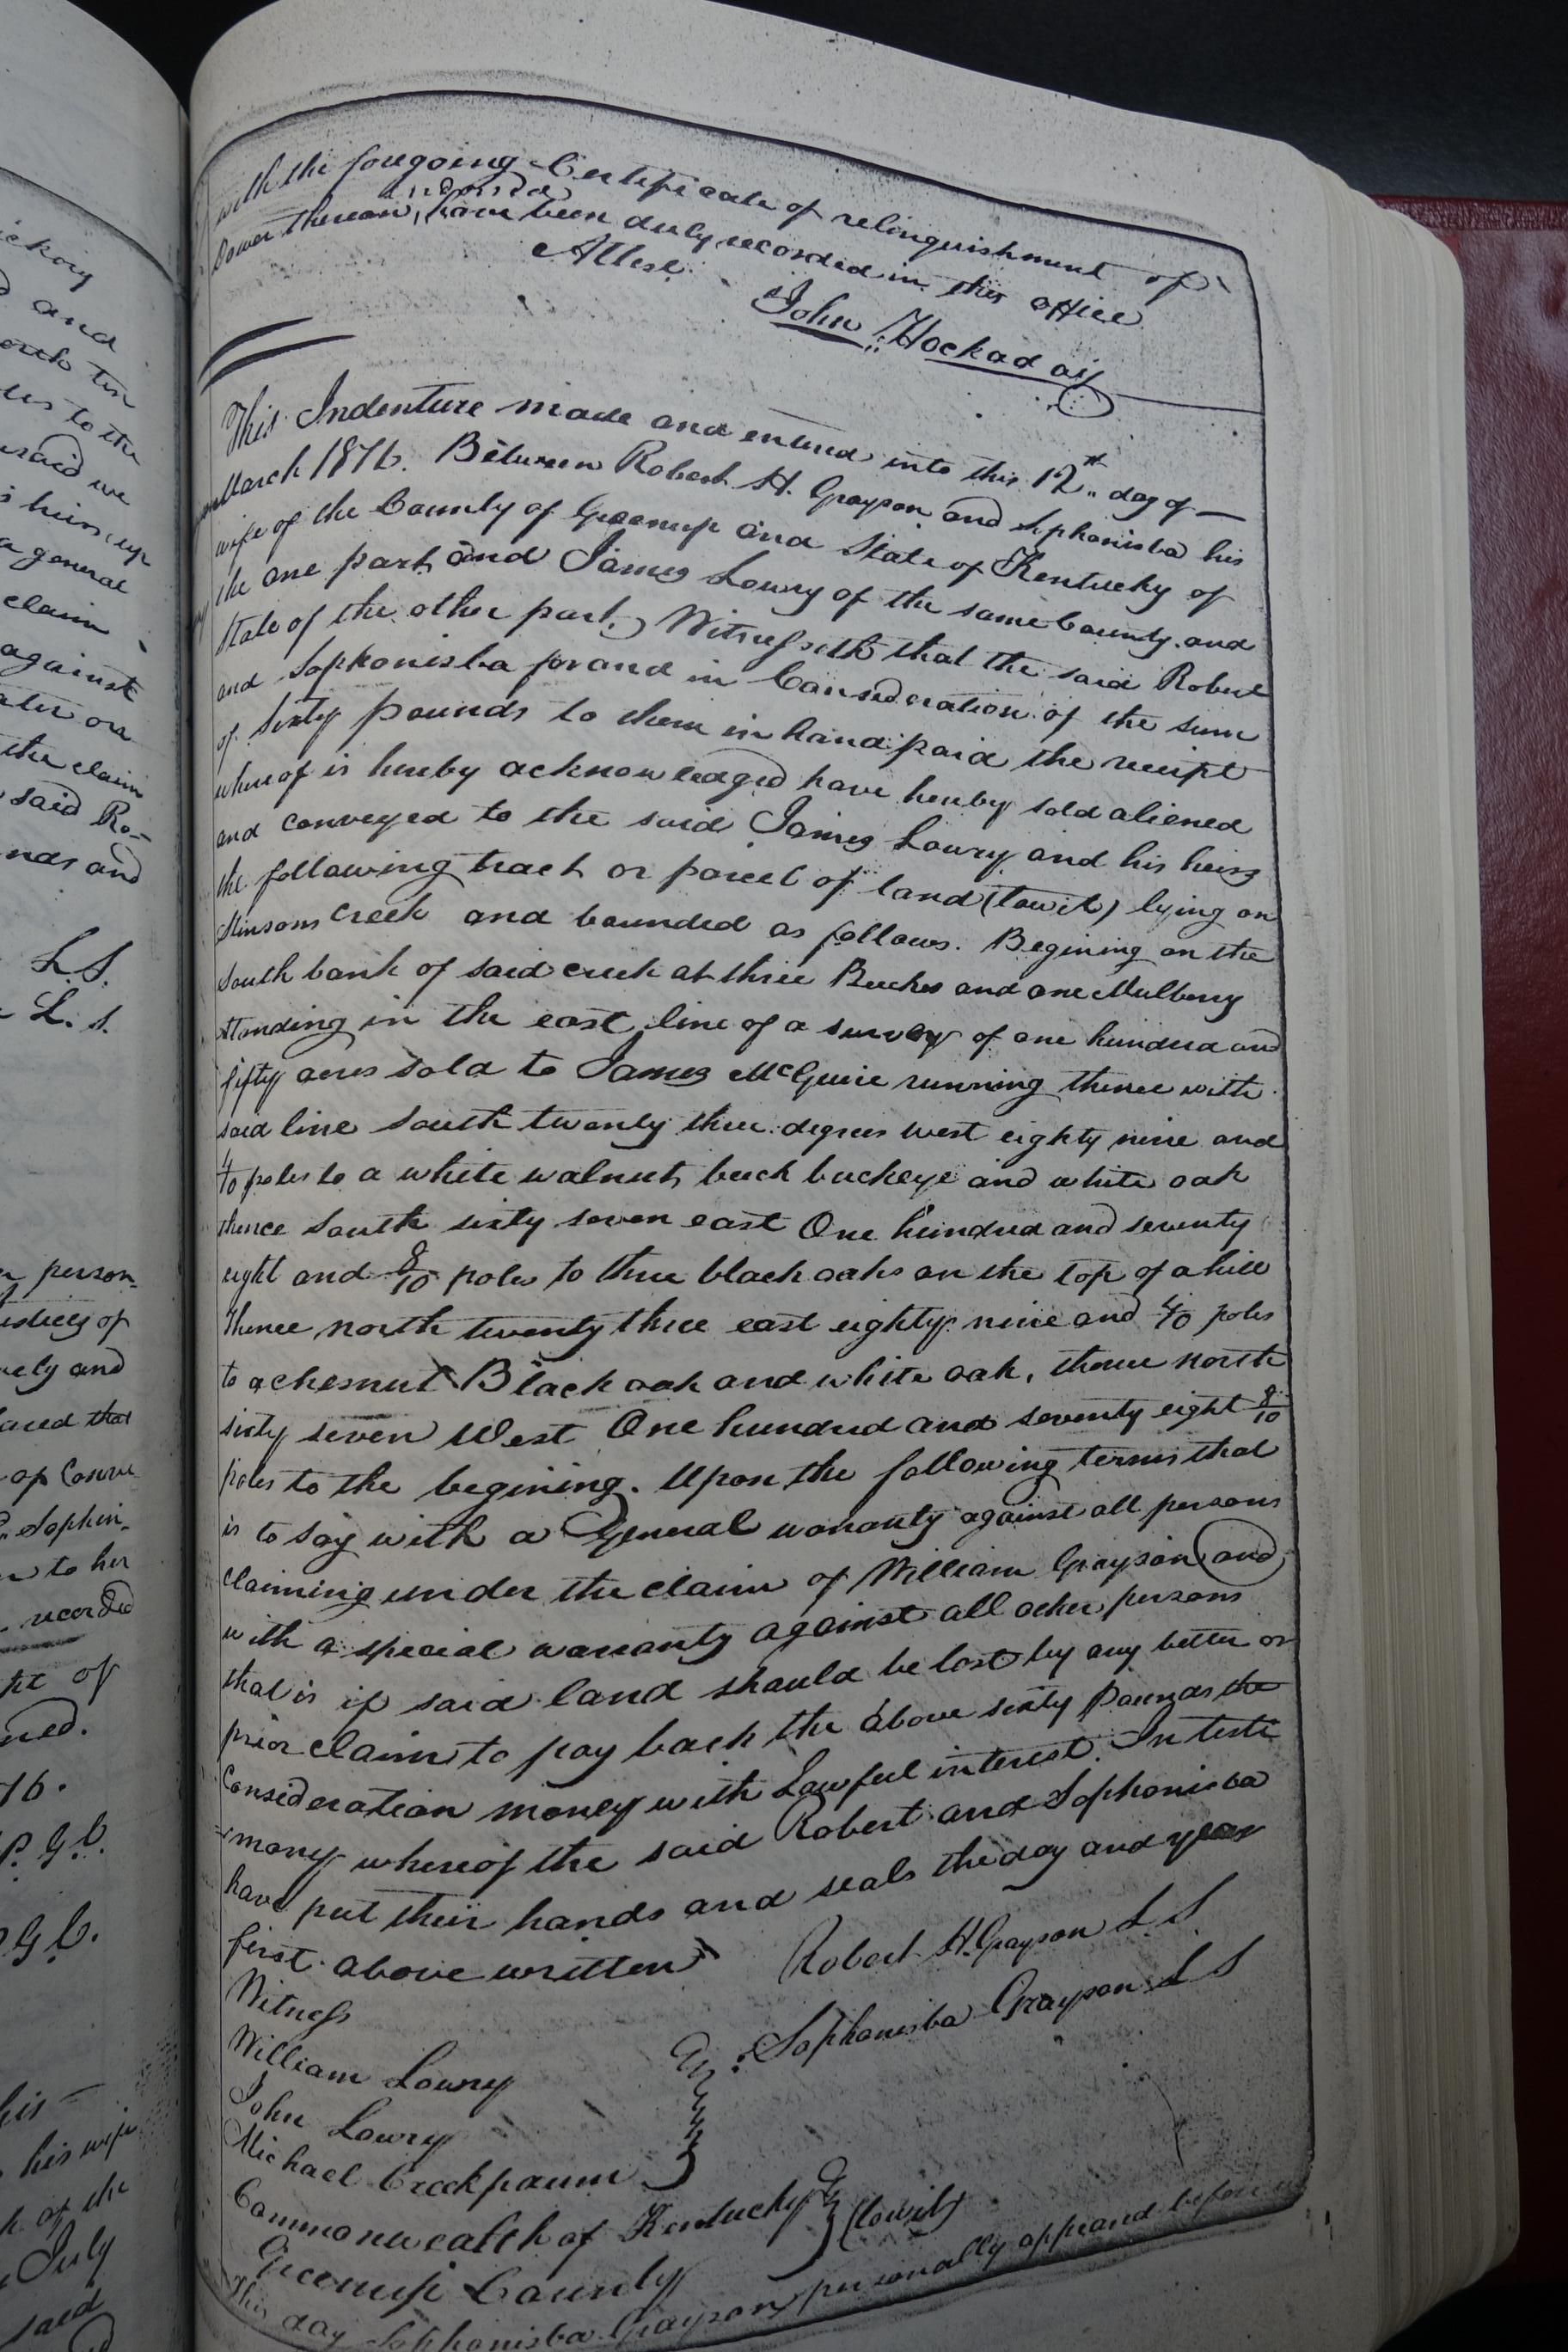 with the foregoing Certificate of relinquishment of
Dower thereon, endorsed have been duly recorded in this office
Attest
John Hockaday
This Indenture made and entered into this 12th day of —
March 1816. Between Robert H. Grayson and Sophonisba his
wife of the County of Greenup and State of Kentucky of
the one part and James Lowry of the same County and
State of the other part, Witnesseth that the said Robert
and Sophonisba for and in Consideration of the sum
of Sixty pounds to them in hand paid the receipt
whereof is hereby acknowledged have hereby sold aliened
and conveyed to the said James Lowry and his heirs
the following tract or parcel of land (towit) lying on
Stinsons Creek and bounded as follows. Begining on the
South bank of said creek at three Beeches and one Mulberry
standing in the east line of a survey of one hundred and
fifty acres sold to James McGuire running thence with
said line South twenty three degrees west eighty nine and
4/10 poles to a white walnut, beech buckeye and white oak
thence South sixty seven east One hundred and seventy
eight and 8/10 poles to three black oaks on the top of a hill
thence north twenty three east eighty nine and 4/10 poles
to a chesnut Black oak and white oak, thence north
sixty seven West One hundred and seventy eight 8/10
poles to the begining. Upon the following terms that
is to say with a General waranty against all persons
claiming under the claim of William Grayson and
with a special waranty against all other persons
that is if said land should be lost by any better or
prior claim to pay back the above sixty pounds the
Consideration money with Lawful interest. In testi
-mony whereof the said Robert and Sophonisba
have put their hands and seals the day and year
first above written
Robert H. Grayson L S
Witness
Sophonisba Grayson L S
William Lowry
John Lowry
Michael Creekpaum
Commonwealth of Kentucky
Greenup County (towit)
This day Sophonisba Grayson personally appeared before
ickory
and
ten
us to the
said we
heirs, up
a general
claim
against
or
the claim
said Ro-
nds and
L.S.
L. S.
person-
of
ely and
that
of Conve
Sophin-
to her
recorded
of
ned.
16.
P. G. C.
G. C.
his
his wife
of the
July
said